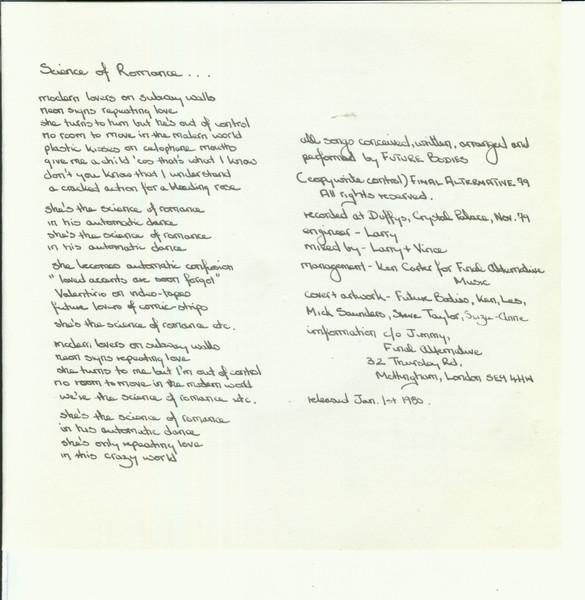 Science of Romance...
modern lovers on subway walls
neon signs repeating love
she turns to him but he's out of control
no room to move in the modern world
plastic kisses on celophane mouths
give me a child 'cos that's what I know
don't you know that I understand
a cracked action for a bleeding rose
she's the science of romance
in his automatic dance
she's the science of romance
in his automatic dance
she becomes automatic confusion
"loved accents are soon forgot"
Valentino on video-tapes
future lovers of comic-strips
she's the science of romance etc.
modern lovers on subway walls
neon signs repeating love
she turns to me but I'm out of control
no room to move in the modern world
we're the science of romance etc.
she's the science of romance
in his automatic dance
she's only repeating love
in this crazy world
all songs conceived, written, arranged and
performed by FUTURE BODIES
(copywrite control) FINAL ALTERNATIVE 79
All rights reserved.
recorded at Duffys, Crystal Palace, Nov. 79
engineer - Larry
mixed by - Larry + Vince
management - Ken Carter for Final Alternative
Music
cover artwork - Future Bodies, Ken, Les,
Mick Saunders, Steve Taylor, Suzie-Anne
information c/o Jimmy,
Final Alternative
32 Thursley Rd.
Mottingham, London SE9 4HW
released Jan. 1st 1980.